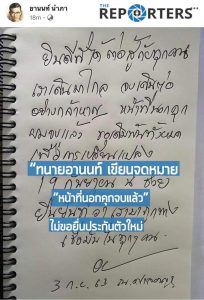 อานนท์ นำภา
18m
THE
REPORTERS
ยินดีที่ได้ต่อสู้กับทุกคน
เราเดินมาไกล จงเดินต่อ
อย่างกล้าหาญ หน้าที่นอกคุก
ผมจบแล้ว ขอ
เพื่อการเปลี่ยนแปลง
“ทนายอานนท์ เขียนจดหมาย
19 กันยายน นี้
“หน้าที่นอกคุกจบแล้ว”
ยืนยันว่าเรามาถูกทาง
ไม่ขอยื่นประกันตัวใหม่
เชื่อมั่นในทุกๆ คน
3 ก.ย. 63